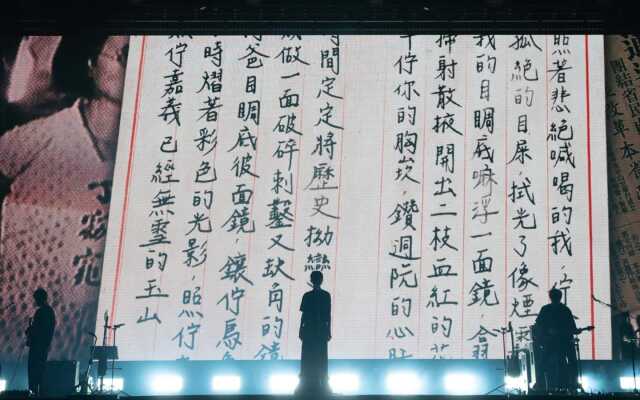 照著悲絕喊喝的我，佇
孤絕的目屎，拭光了像煙霧
我的目睭底嘛浮一面鏡，翕
掃射散掖開出二枝血紅的花
佇你的胸崁，鑽迵阮的心肝
時間定定將歷史拗
成做一面破碎刺鑿又缺角的鏡
爸目睭底彼面鏡，鑲佇烏
時熠著彩色的光影，照佇
佇嘉義已經無雪的玉山